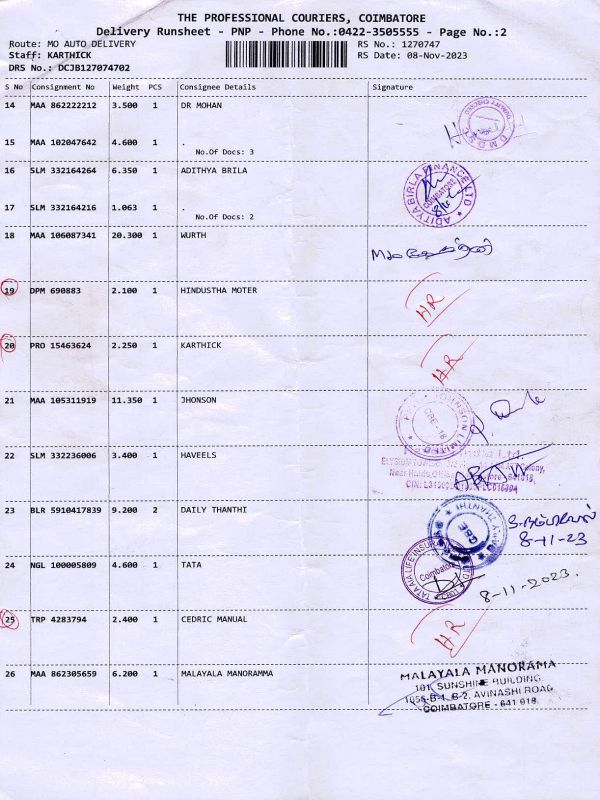 THE PROFESSIONAL COURIERS, COIMBATORE
Delivery Runsheet - PNP - Phone No.:0422-3505555 - Page No.:2
Route: MO AUTO DELIVERY RS No.: 1270747
Staff: KARTHICK RS Date: 08-Nov-2023
DRS No.: DCJB127074702
S No Consignment No Weight PCS Consignee Details Signature
14 MAA 862222212 3.500 1 DR MOHAN
15 MAA 102047642 4.600 1 .
No.Of Docs: 3
16 SLM 332164264 6.350 1 ADITHYA BRILA
ADITYA BIRLA FINANCE LTD
COIMBATORE
17 SLM 332164216 1.063 1 .
No.Of Docs: 2
18 MAA 106087341 20.300 1 WURTH
19 DPM 690883 2.100 1 HINDUSTHA MOTER HR
20 PRO 15463624 2.250 1 KARTHICK HR
21 MAA 105311919 11.350 1 JHONSON
JOHNSON LIMITED
CBE-18
22 SLM 332236006 3.400 1 HAVEELS
23 BLR 5910417839 9.200 2 DAILY THANTHI
DAILY THANTHI
CBE
8-11-23
24 NGL 100005809 4.600 1 TATA
TATA AIA LIFE INSURANCE
Coimbatore
8-11-2023.
25 TRP 4283794 2.400 1 CEDRIC MANUAL HR
26 MAA 862305659 6.200 1 MALAYALA MANORAMMA
MALAYALA MANORAMA
101, SUNSHINE BUILDING
1056-B-1, B-2, AVINASHI ROAD
COIMBATORE - 641 018